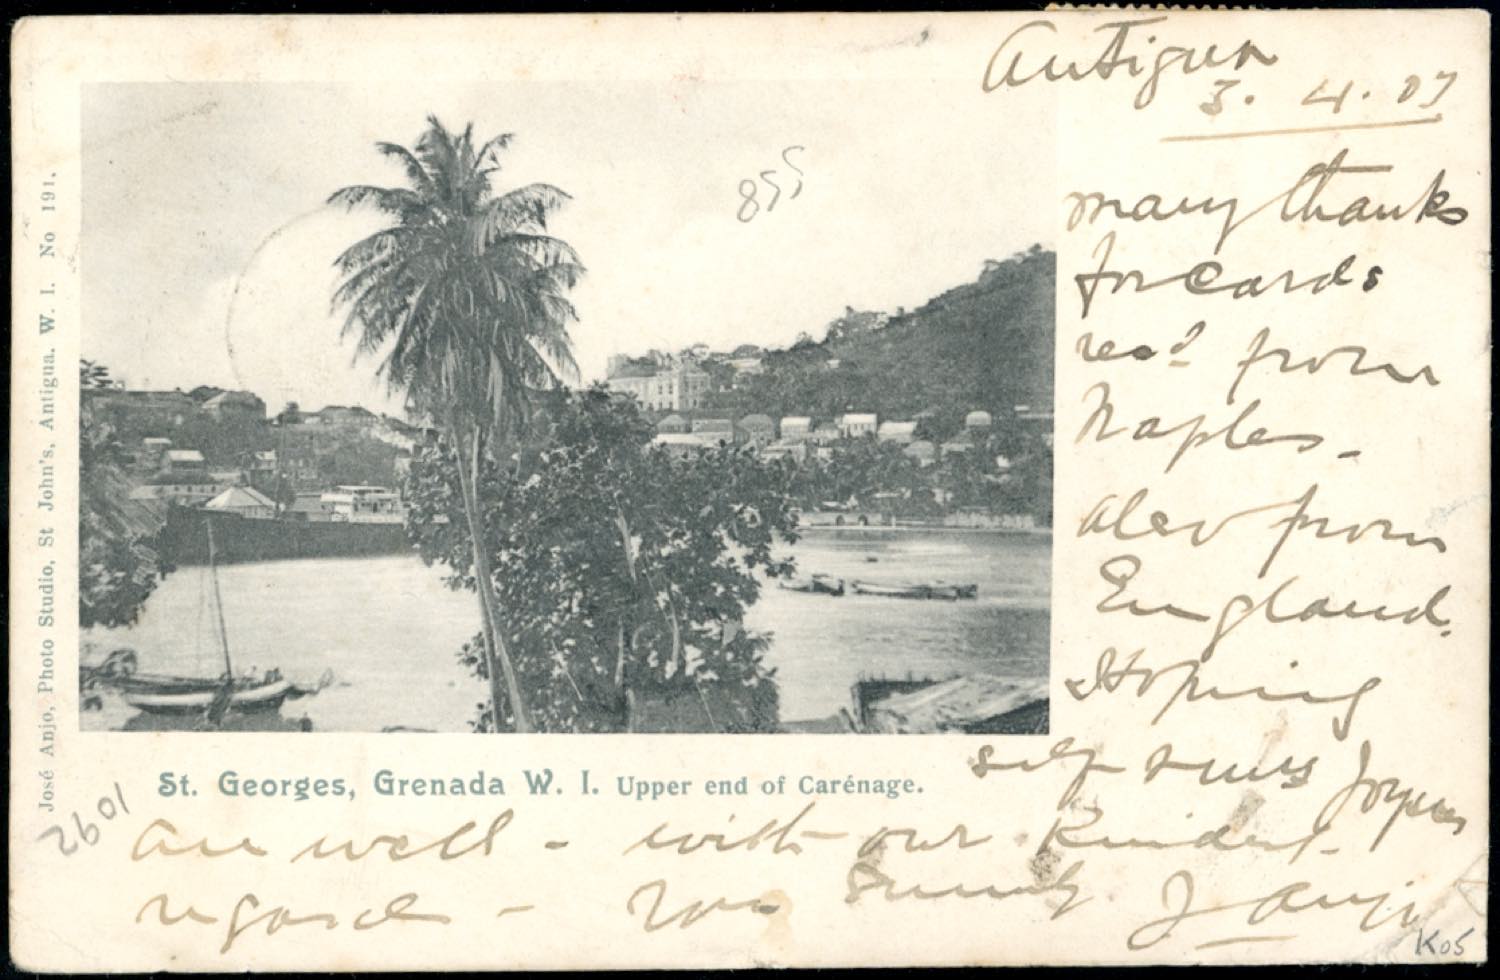 Antigua
3. 4. 07
many thanks
for cards
recd from
Naples -
also from
England.
Hoping
self &
are well - with our kindest
regards - Yours J Anjo
855
St. Georges, Grenada W. I. Upper end of Carénage.
José Anjo, Photo Studio, St John's, Antigua. W. I. No 191.
2601
K05